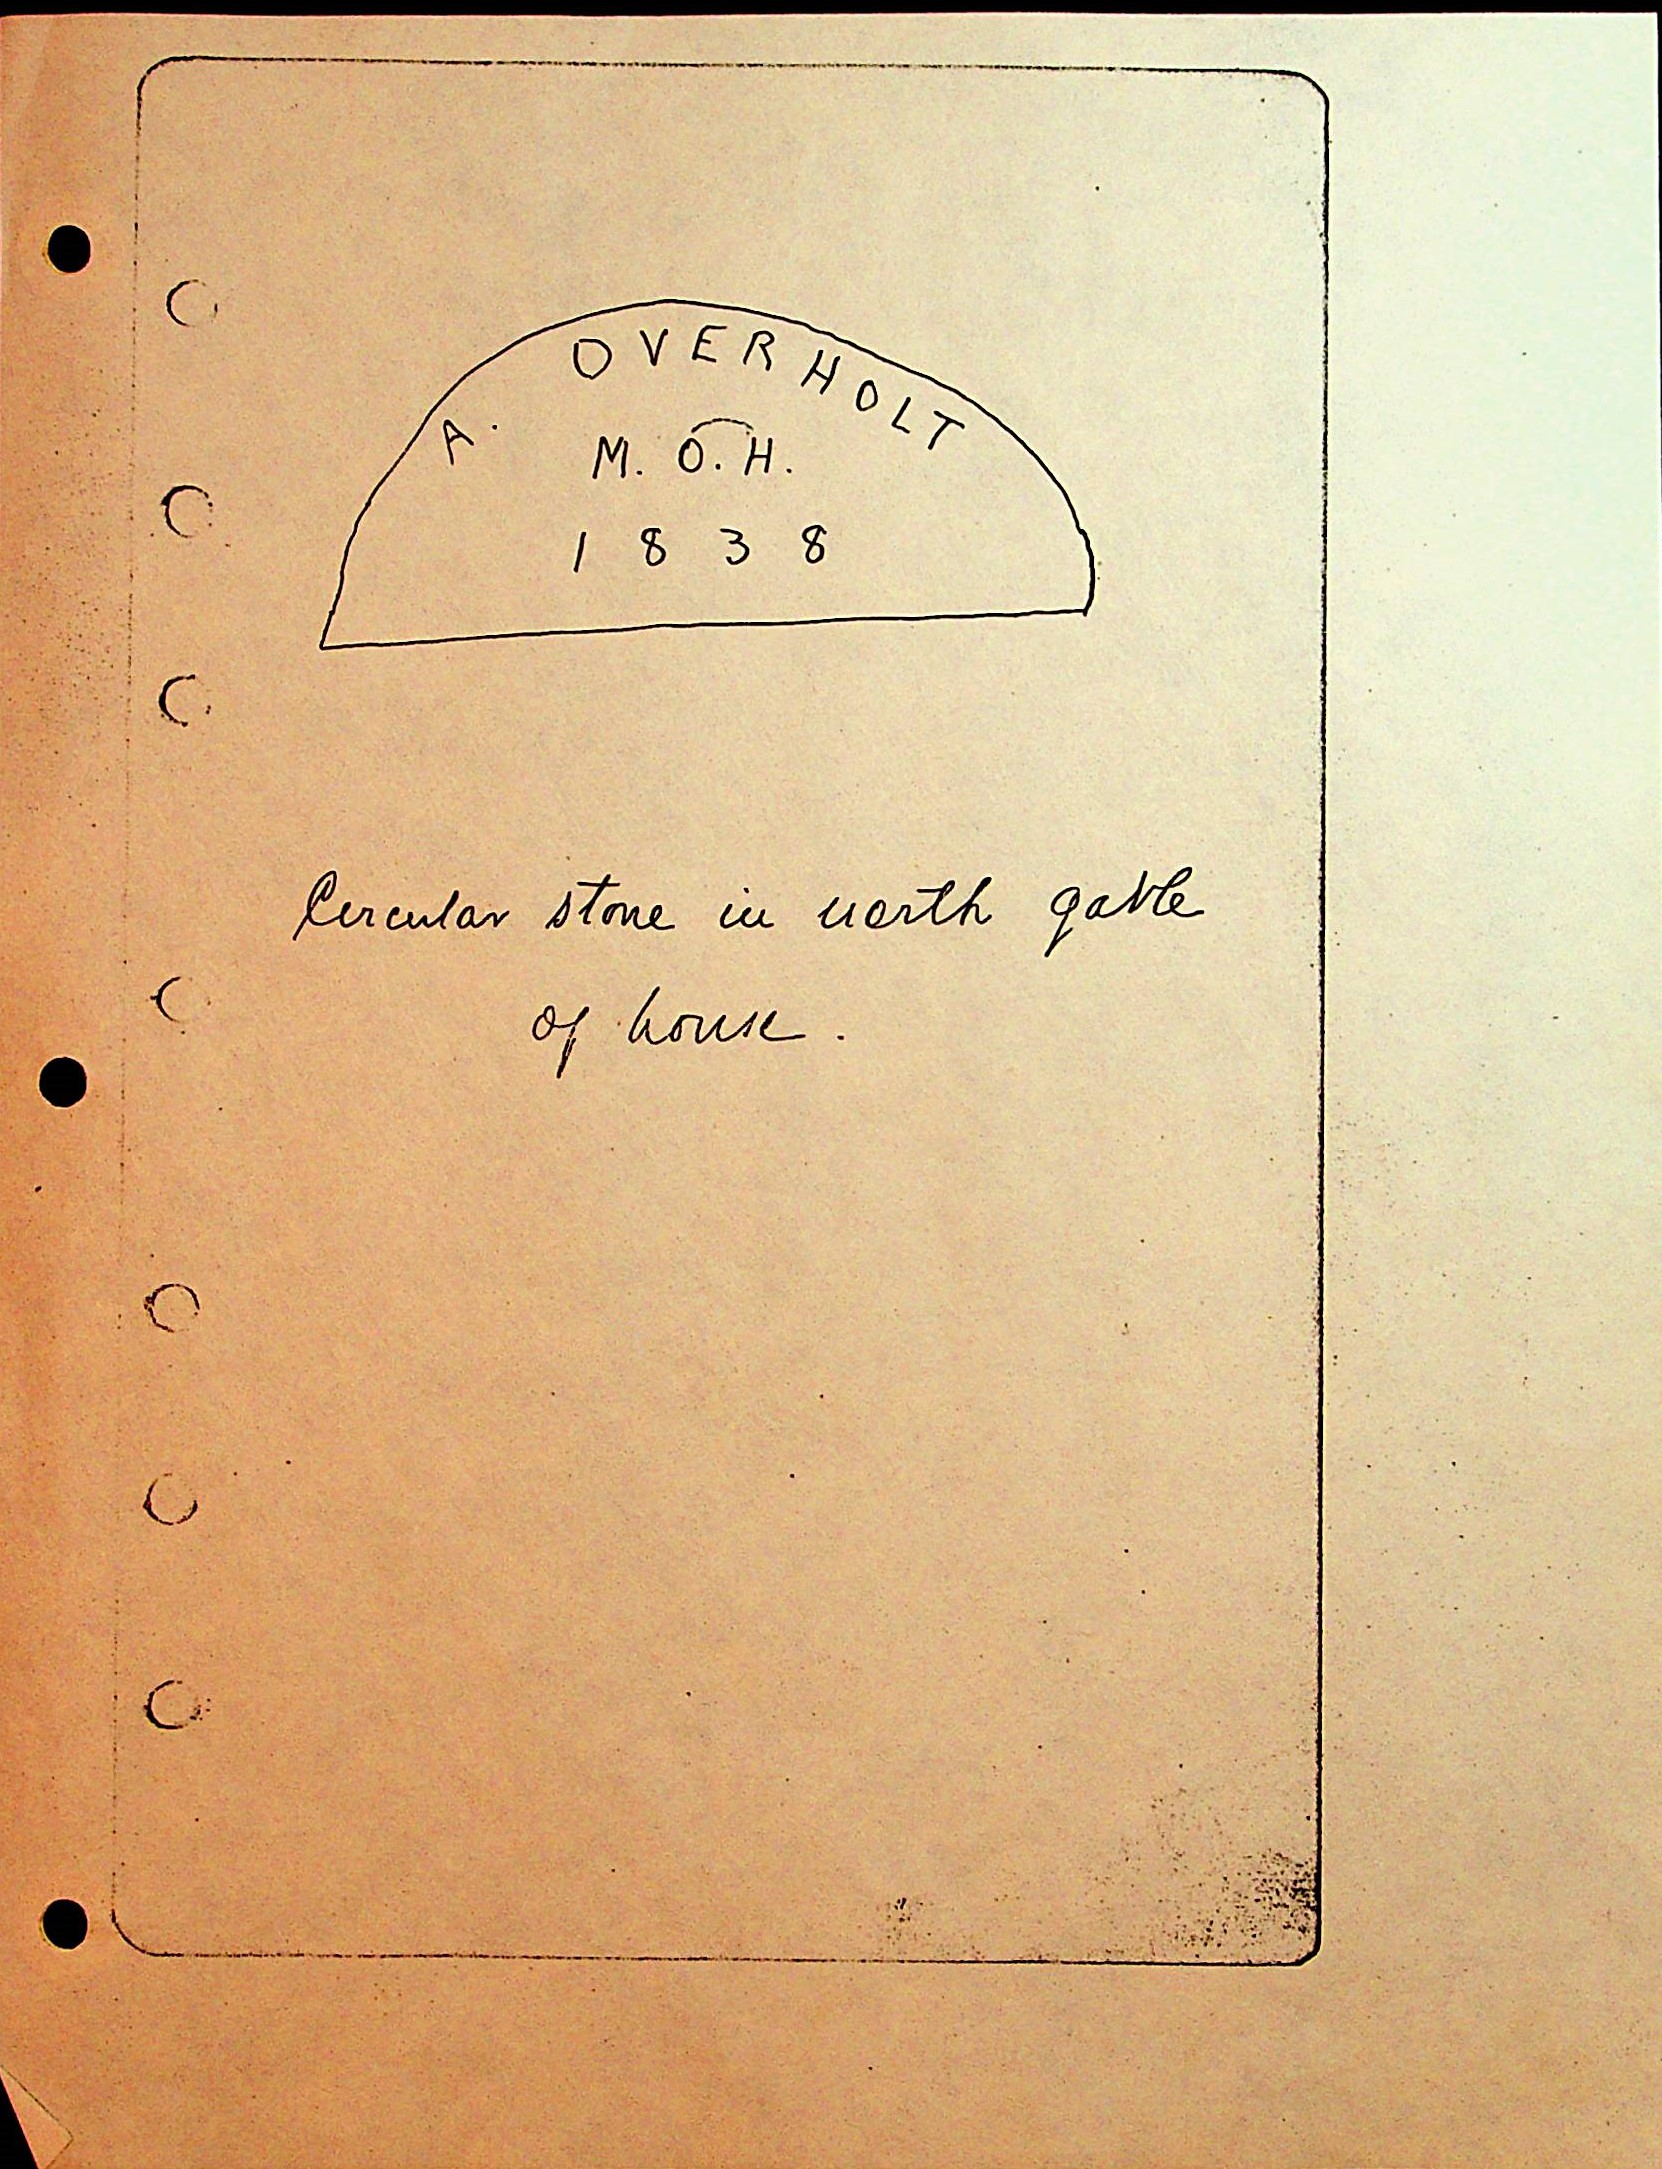 A. OVERHOLT
M. O.H.
1838
Circular stone in north gable
of house.